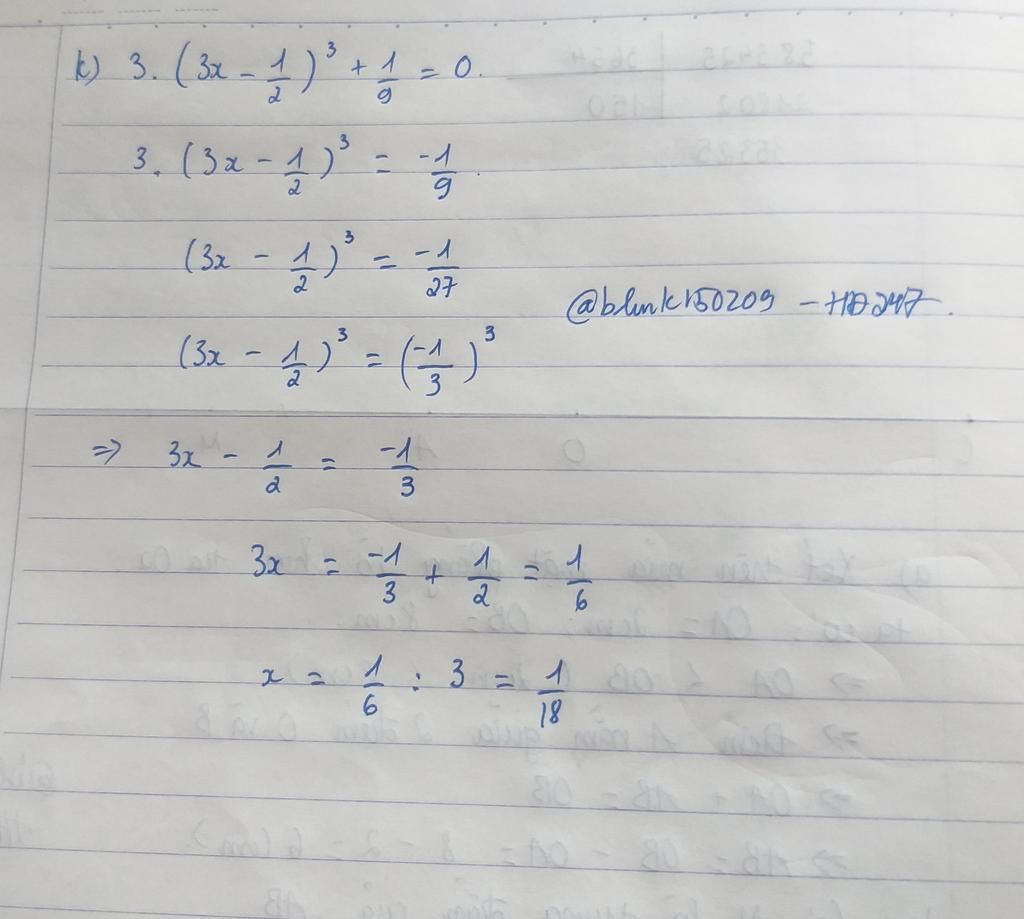 k) 3. (3x - 1/2)³ + 1/9 = 0.
3. (3x - 1/2)³ = -1/9.
(3x - 1/2)³ = -1/27
@blink150209 - HD247.
(3x - 1/2)³ = (-1/3)³
⇒ 3x - 1/2 = -1/3
3x = -1/3 + 1/2 = 1/6
x = 1/6 : 3 = 1/18